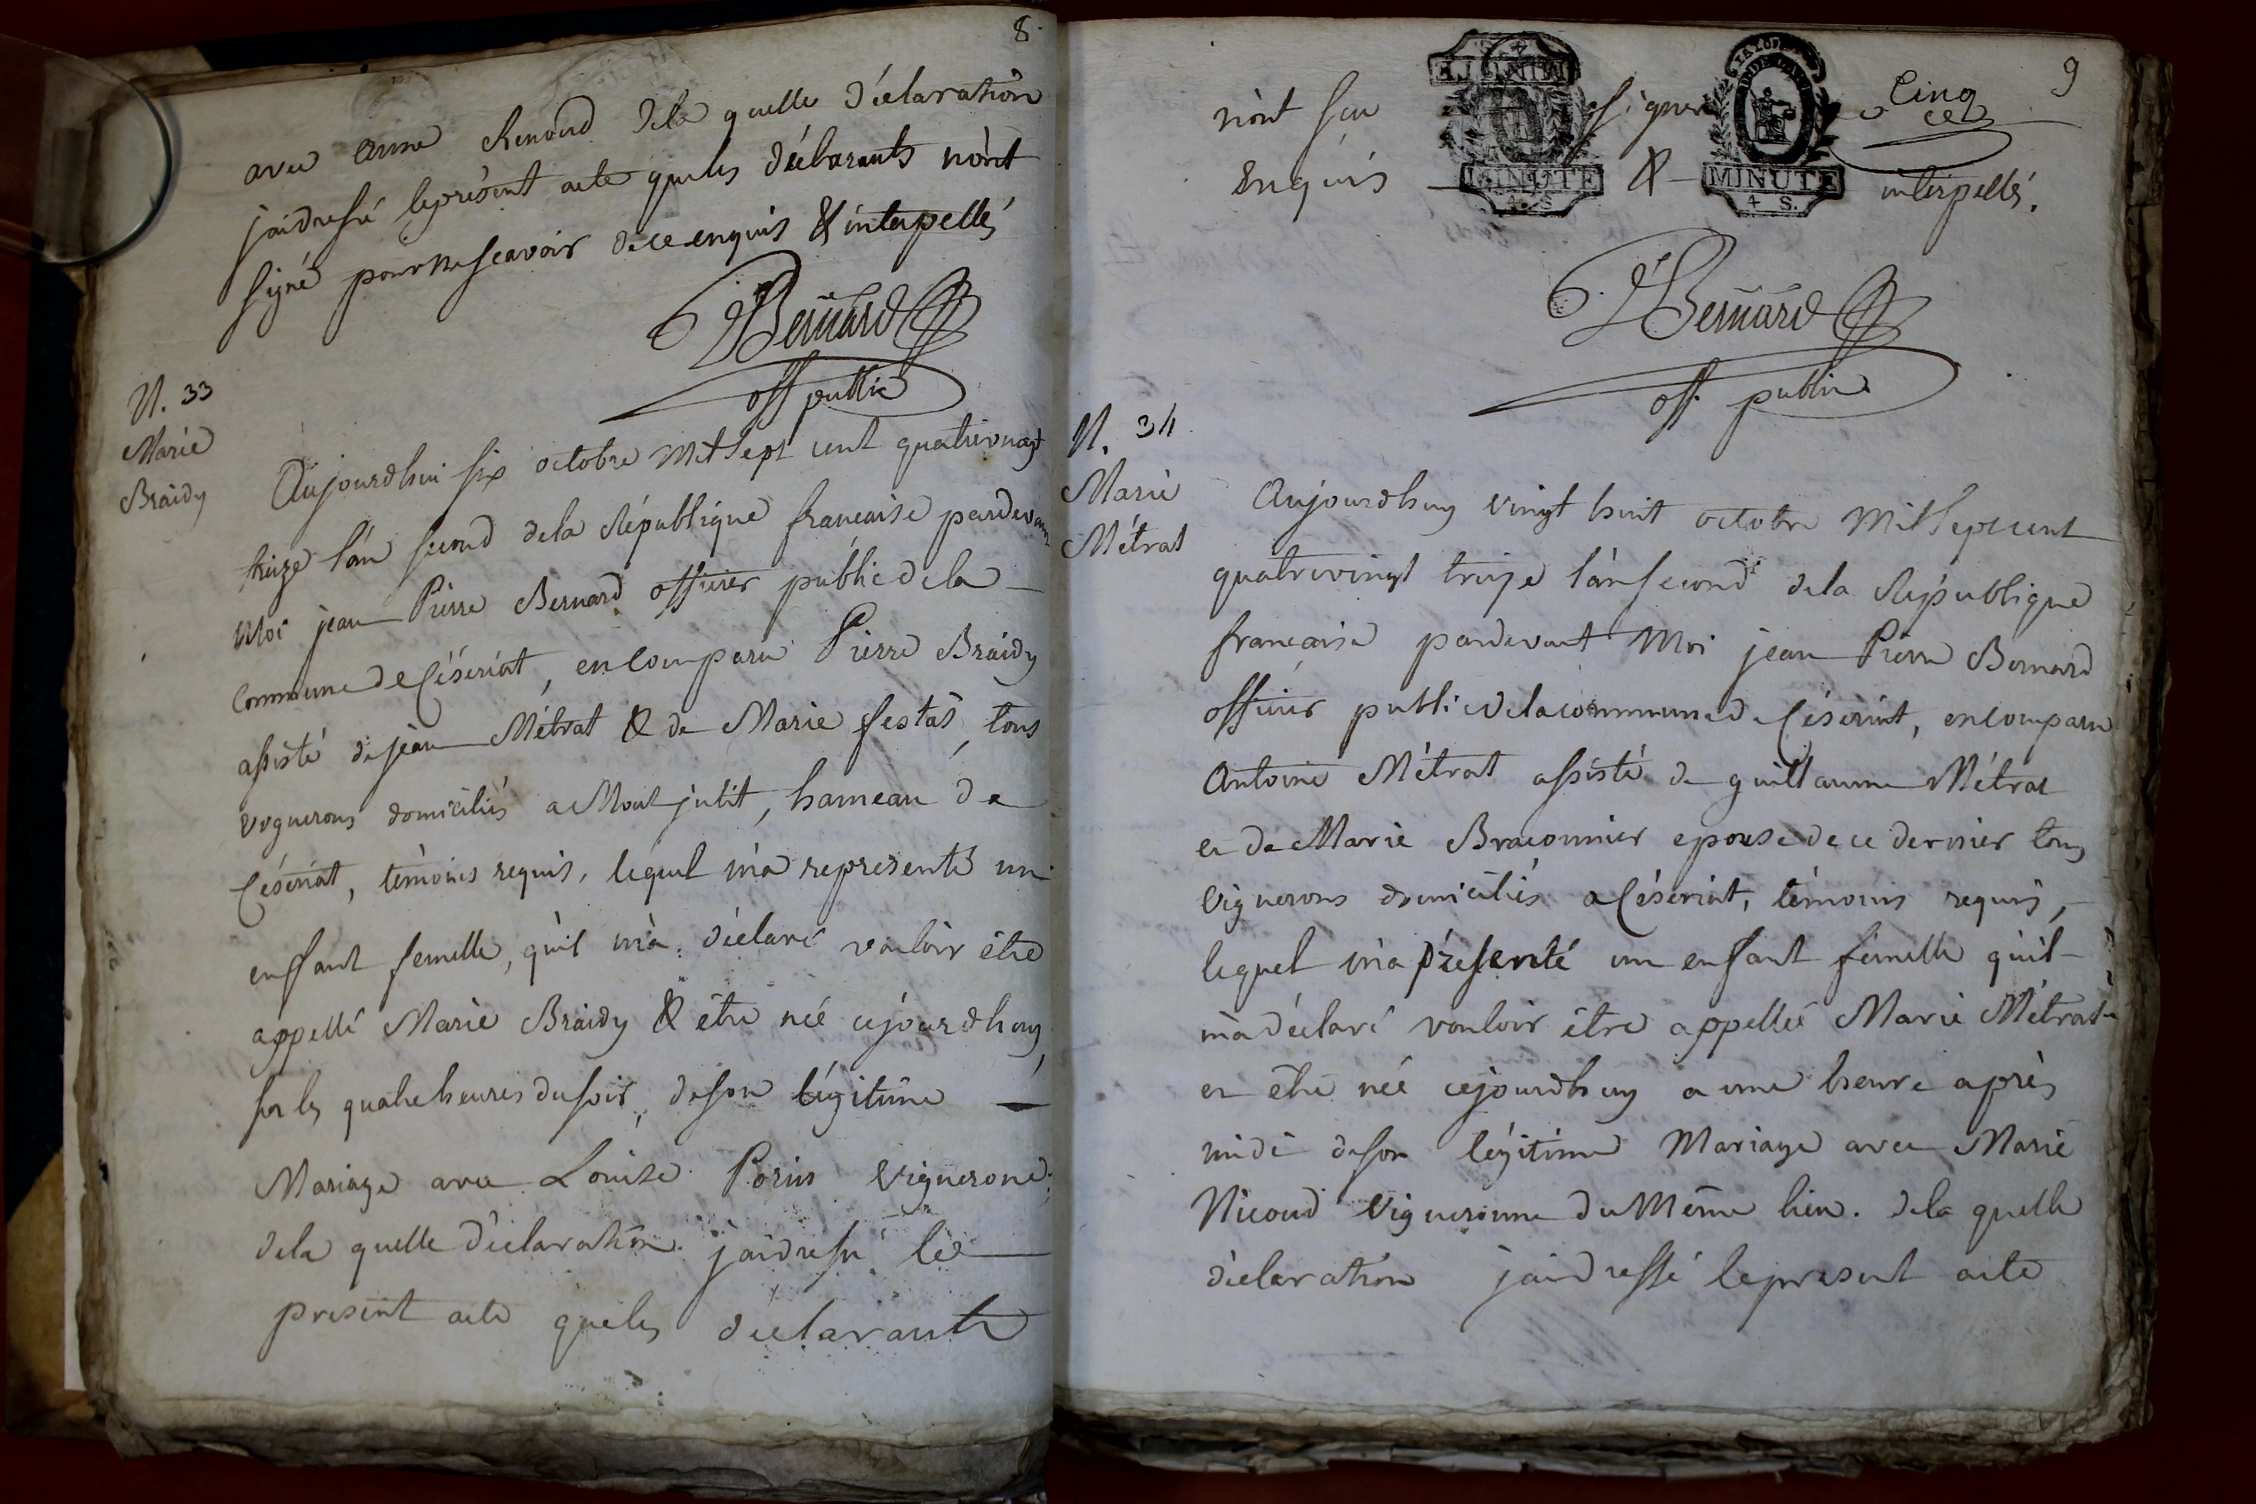 8
avec anne Renoud dela quelle déclaration
j'aidressé leprésent acte queles déclarants n'ont
signé pour ne scavoir de ce enquis & interpellés
Bernard
off public
N. 33
Marie
Braidy
Aujourdhui six octobre Mil sept cent quatrevingt
treize l'an second dela République francaise pardevant
Moi jean Pierre Bernard officier public dela
Commune de Céseriat, en comparu Pierre Braidy
assisté de jean Métrat & de Marie festas, tous
vignerons domiciliés a Mont julit, hameau de
Céseriat, témoins requis, lequel m'a representé un
enfant femelle, qu'il m'a déclaré vouloir être
appellé Marie Braidy & être née cejourdhuy,
sur les quatre heures du soir, deson légitime
Mariage avec Louise Porin Vignerone
dela quelle déclaration j'aidressé le
present acte queles déclarants
9
n'ont scu signer de ce
Cinq
enquis & interpellés.
MINUTE
MINUTE
4 S.
Bernard
off. public
N. 34
Marie
Métrat
Aujourdhuy vingt huit octobre Mil Septcent
quatrevingt treize l'an second dela République
francaise pardevant Moi jean Pierre Bernard
officier public delacommune de Céseriat, encomparu
Antoine Métrat assisté de guillaume Métrat
et de Marie Braconnier epouse de ce dernier tous
Vignerons domiciliés a Céseriat, témoins requis,
lequel m'a présenté un enfant femelle qu'il
m'a déclaré vouloir être appellée Marie Métrat
et être née cejourdhuy a une heure après
midi deson légitime Mariage avec Marie
Nicoud Vigneronne du Même lieu. dela quelle
déclaration j'aidressé lepresent acte